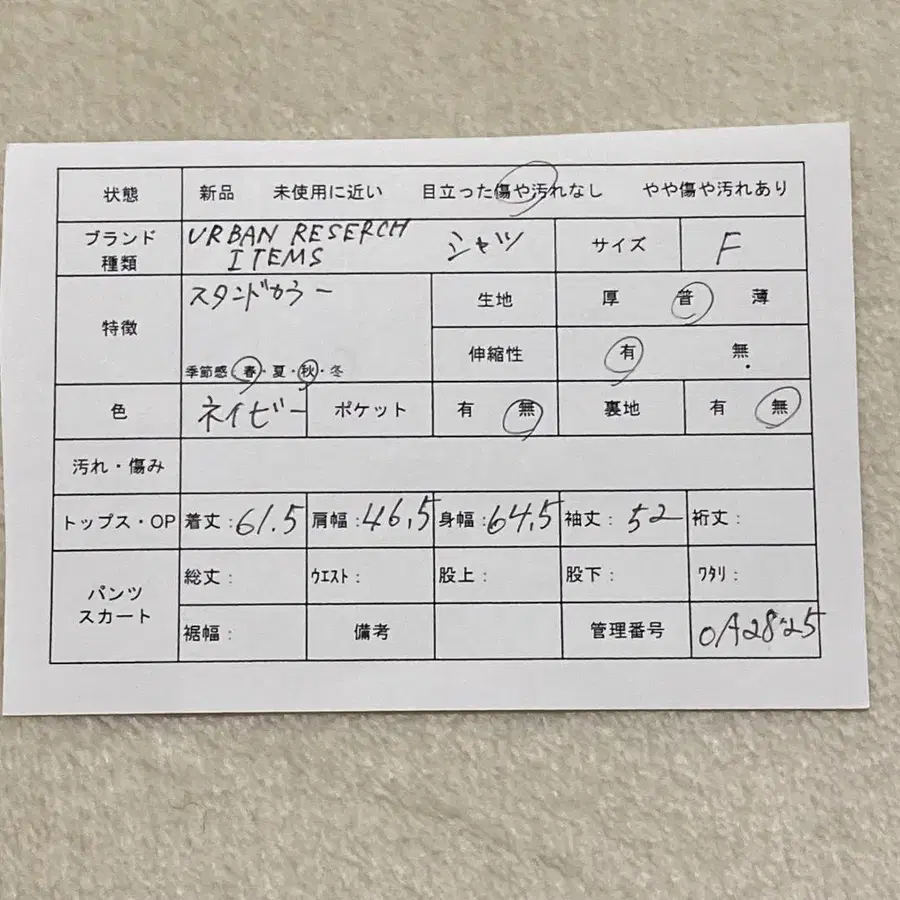 状態 新品 未使用に近い 目立った傷や汚れなし やや傷や汚れあり
ブランド 種類 URBAN RESERCH ITEMS シャツ サイズ F
特徴 スタンドカラー 生地 厚 普 薄
季節感 春・夏・秋・冬 伸縮性 有 無
色 ネイビー ポケット 有 無 裏地 有 無
汚れ・傷み
トップス・OP 着丈:61.5 肩幅:46.5 身幅:64.5 袖丈:52 裄丈:
パンツ スカート 総丈: ウエスト: 股上: 股下: ワタリ:
裾幅: 備考 管理番号 0A2825